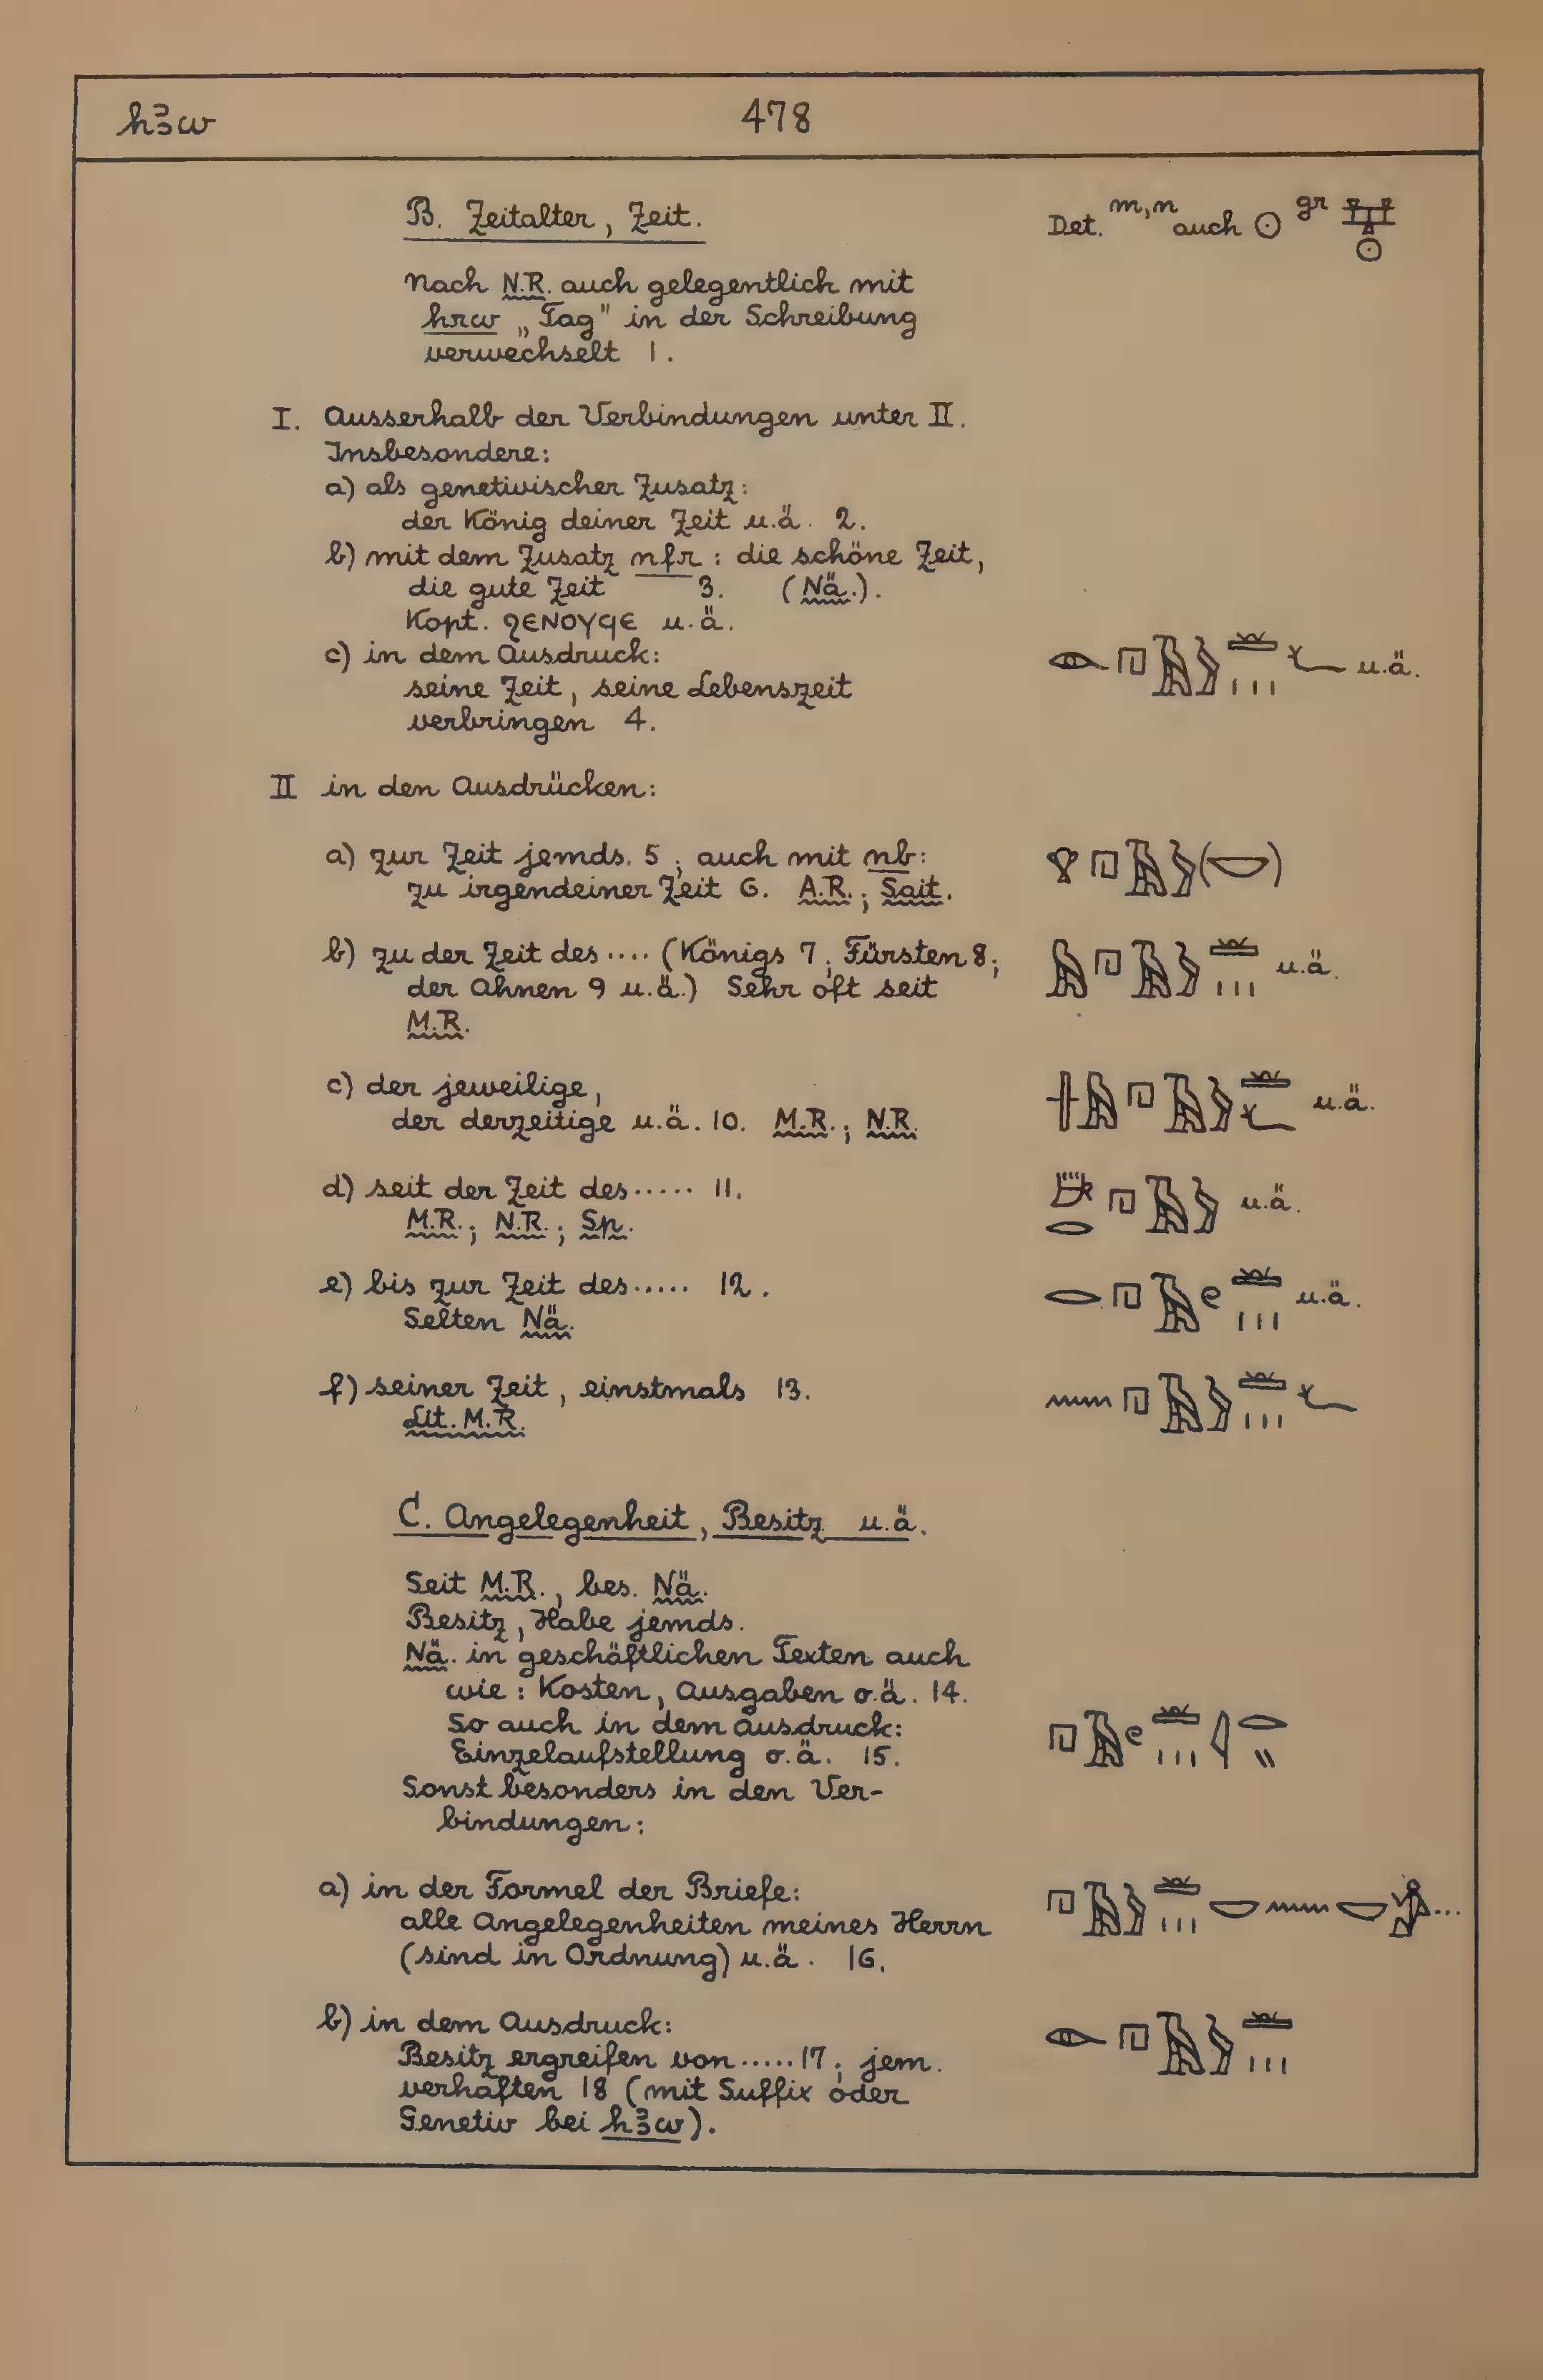 hꜣw
478
B. Zeitalter, Zeit.
Det. m,n auch ☉ gr
Nach N.R. auch gelegentlich mit
hrw „Tag" in der Schreibung
verwechselt 1.
I. Ausserhalb der Verbindungen unter II.
Insbesondere:
a) als genetivischer Zusatz:
der König deiner Zeit u.ä. 2.
b) mit dem Zusatz nfr : die schöne Zeit,
die gute Zeit 3. (Nä.).
Kopt. ϩⲉⲛⲟⲩϥⲉ u.ä.
c) in dem Ausdruck: u.ä.
seine Zeit, seine Lebenszeit
verbringen 4.
II in den Ausdrücken:
a) zur Zeit jemds. 5; auch mit nb:
zu irgendeiner Zeit 6. A.R.; Sait.
b) zu der Zeit des.... (Königs 7; Fürsten 8; u.ä.
der Ahnen 9 u.ä.) Sehr oft seit
M.R.
c) der jeweilige, u.ä.
der derzeitige u.ä. 10. M.R.; N.R.
d) seit der Zeit des..... 11. u.ä.
M.R.; N.R.; Sp.
e) bis zur Zeit des..... 12. u.ä.
Selten Nä.
f) seiner Zeit, einstmals 13.
Lit. M.R.
C. Angelegenheit, Besitz u.ä.
Seit M.R., bes. Nä.
Besitz, Habe jemds.
Nä. in geschäftlichen Texten auch
wie: Kosten, Ausgaben o.ä. 14.
So auch in dem Ausdruck:
Einzelaufstellung o.ä. 15.
Sonst besonders in den Ver-
bindungen:
a) in der Formel der Briefe: ...
alle Angelegenheiten meines Herrn
(sind in Ordnung) u.ä. 16.
b) in dem Ausdruck:
Besitz ergreifen von.....17; jem.
verhaften 18 (mit Suffix oder
Genetiv bei hꜣw).